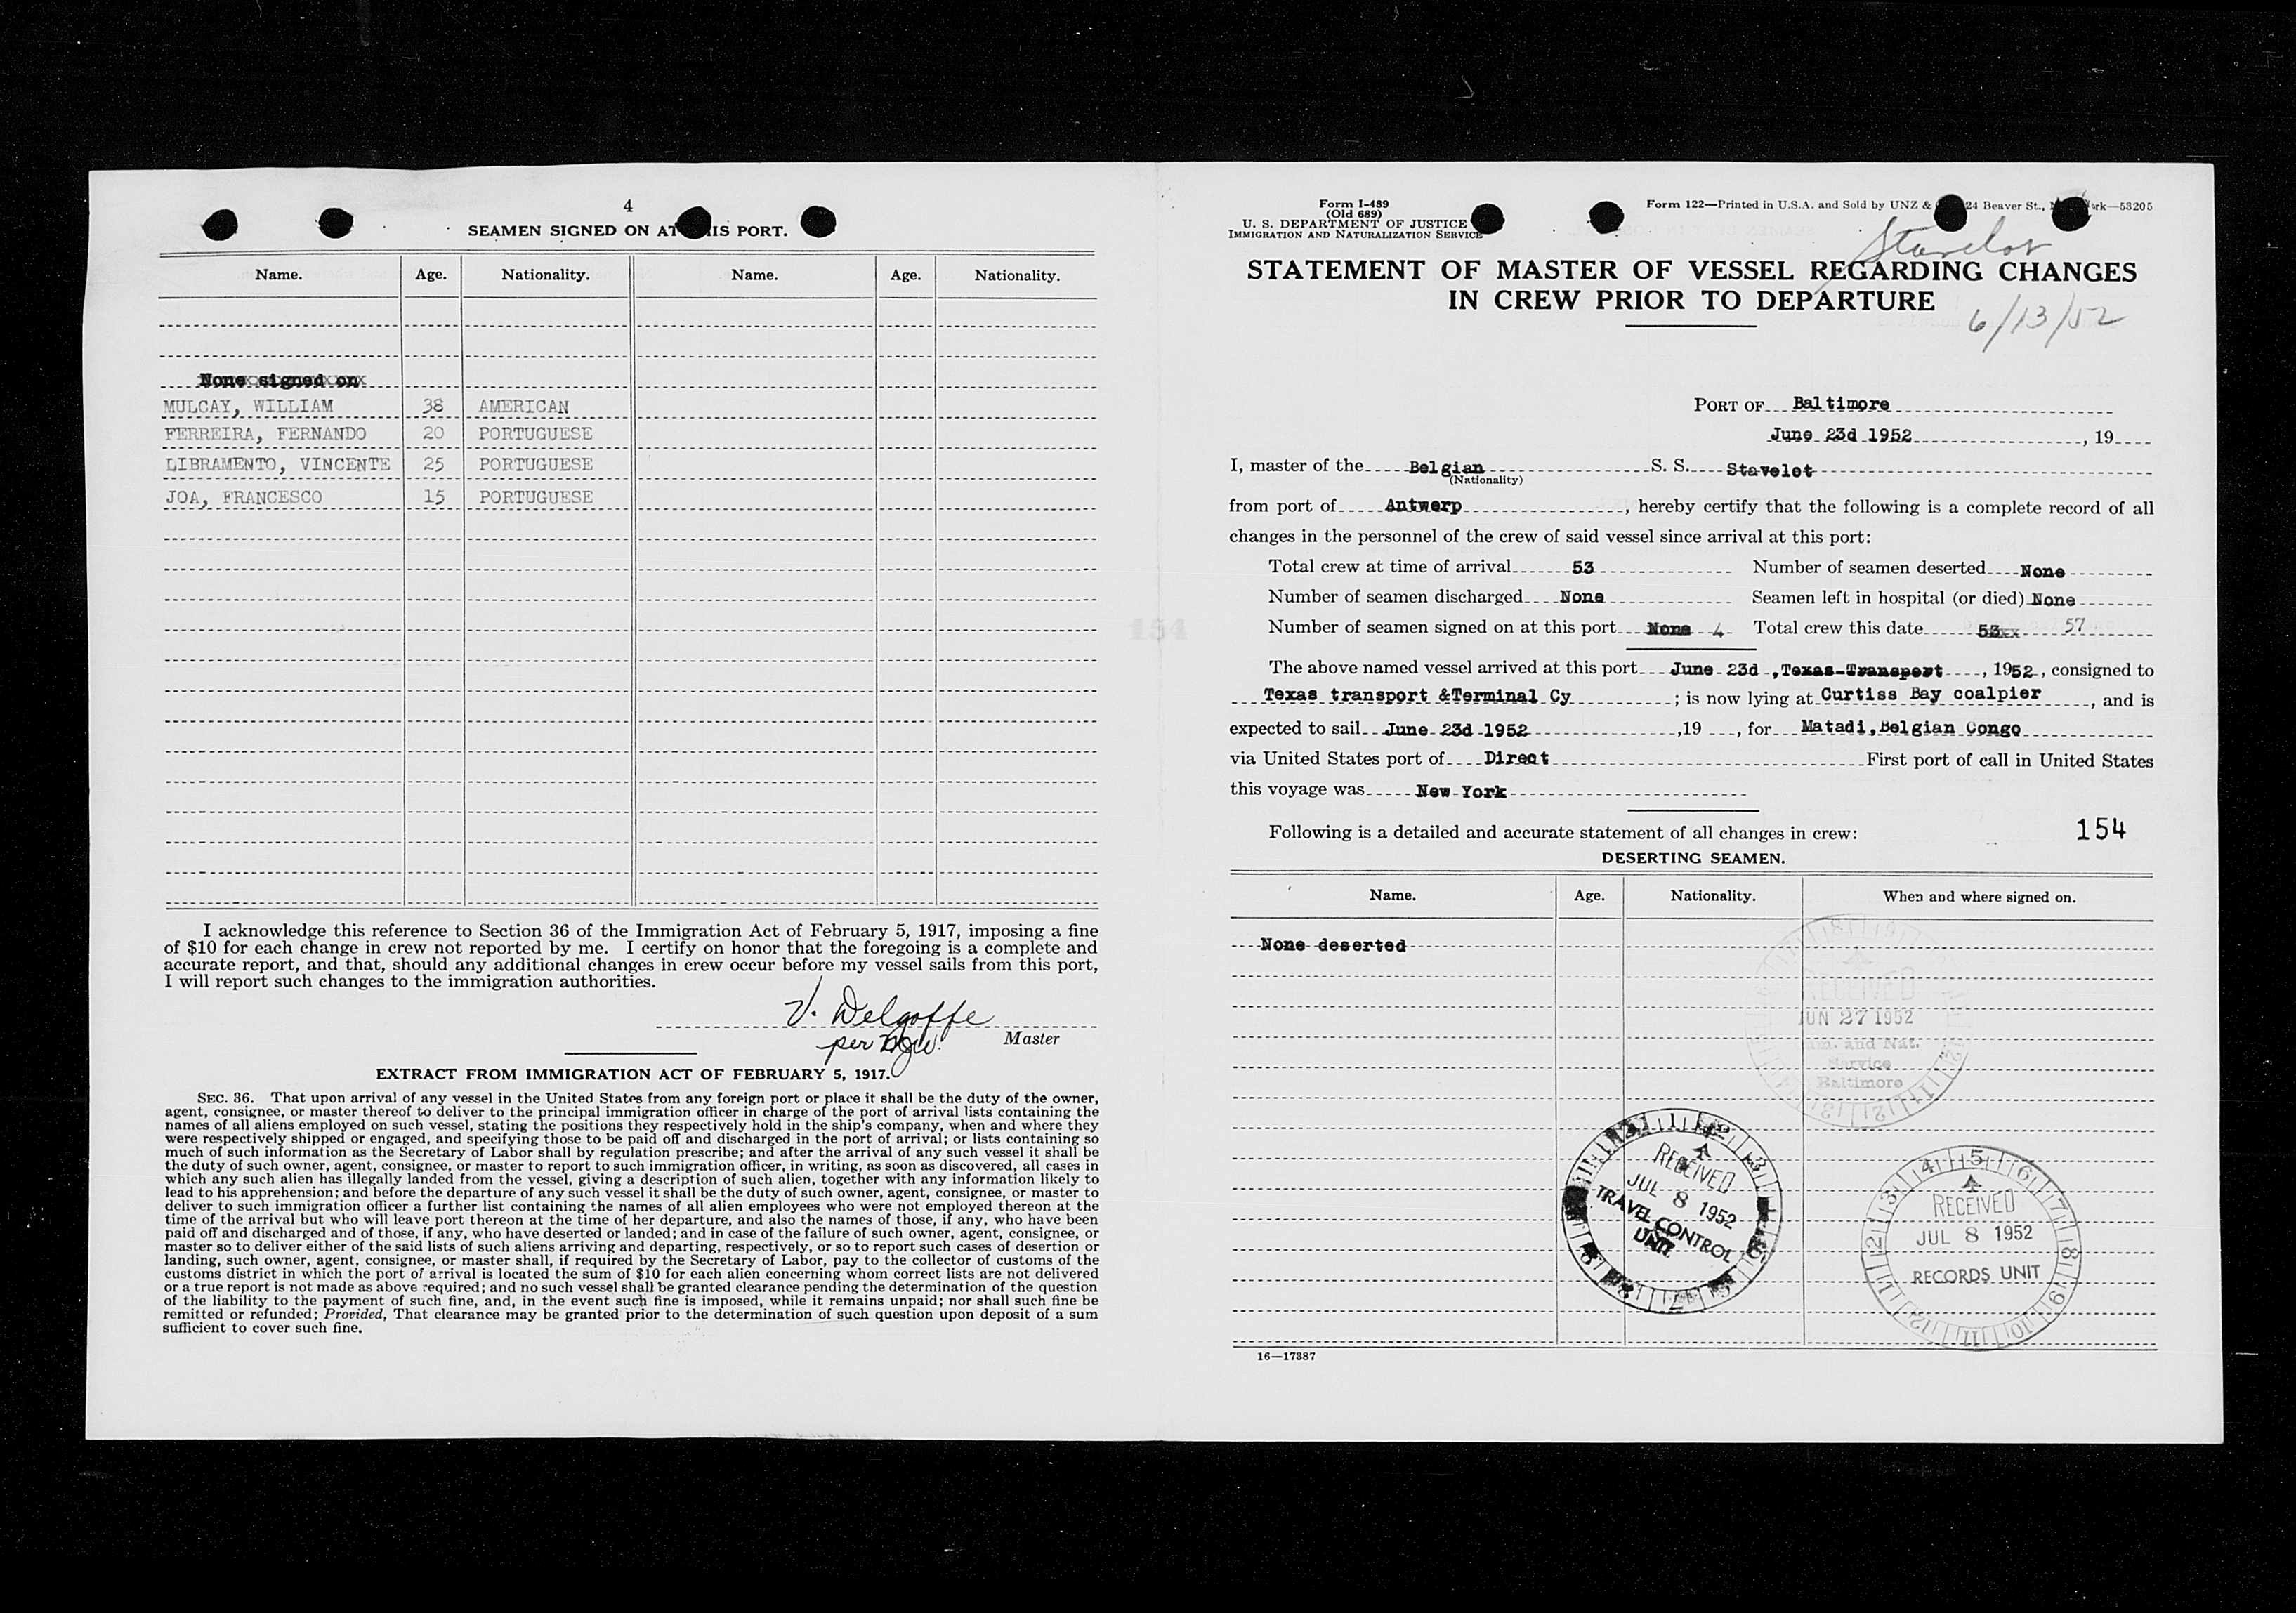 4
SEAMEN SIGNED ON AT THIS PORT.
Name. Age. Nationality. Name. Age. Nationality.
None signed on
MULCAY, WILLIAM 38 AMERICAN
FERREIRA, FERNANDO 20 PORTUGUESE
LIBRAMENTO, VINCENTE 25 PORTUGUESE
JOA, FRANCESCO 15 PORTUGUESE
I acknowledge this reference to Section 36 of the Immigration Act of February 5, 1917, imposing a fine
of $10 for each change in crew not reported by me. I certify on honor that the foregoing is a complete and
accurate report, and that, should any additional changes in crew occur before my vessel sails from this port,
I will report such changes to the immigration authorities.
V. Delgoffe
per
Master
EXTRACT FROM IMMIGRATION ACT OF FEBRUARY 5, 1917.
SEC. 36. That upon arrival of any vessel in the United States from any foreign port or place it shall be the duty of the owner,
agent, consignee, or master thereof to deliver to the principal immigration officer in charge of the port of arrival lists containing the
names of all aliens employed on such vessel, stating the positions they respectively hold in the ship's company, when and where they
were respectively shipped or engaged, and specifying those to be paid off and discharged in the port of arrival; or lists containing so
much of such information as the Secretary of Labor shall by regulation prescribe; and after the arrival of any such vessel it shall be
the duty of such owner, agent, consignee, or master to report to such immigration officer, in writing, as soon as discovered, all cases in
which any such alien has illegally landed from the vessel, giving a description of such alien, together with any information likely to
lead to his apprehension; and before the departure of any such vessel it shall be the duty of such owner, agent, consignee, or master to
deliver to such immigration officer a further list containing the names of all alien employees who were not employed thereon at the
time of the arrival but who will leave port thereon at the time of her departure, and also the names of those, if any, who have been
paid off and discharged and of those, if any, who have deserted or landed; and in case of the failure of such owner, agent, consignee, or
master so to deliver either of the said lists of such aliens arriving and departing, respectively, or so to report such cases of desertion or
landing, such owner, agent, consignee, or master shall, if required by the Secretary of Labor, pay to the collector of customs of the
customs district in which the port of arrival is located the sum of $10 for each alien concerning whom correct lists are not delivered
or a true report is not made as above required; and no such vessel shall be granted clearance pending the determination of the question
of the liability to the payment of such fine, and, in the event such fine is imposed, while it remains unpaid; nor shall such fine be
remitted or refunded; Provided, That clearance may be granted prior to the determination of such question upon deposit of a sum
sufficient to cover such fine.
Form I-489
(Old 689)
U. S. DEPARTMENT OF JUSTICE
IMMIGRATION AND NATURALIZATION SERVICE
Form 122—Printed in U.S.A. and Sold by UNZ & 24 Beaver St., 53205
Stavelot
STATEMENT OF MASTER OF VESSEL REGARDING CHANGES
IN CREW PRIOR TO DEPARTURE
6/13/52
PORT OF Baltimore
June 23d 1952, 19
I, master of the Belgian S. S. Stavelot
(Nationality)
from port of Antwerp, hereby certify that the following is a complete record of all
changes in the personnel of the crew of said vessel since arrival at this port:
Total crew at time of arrival 53 Number of seamen deserted None
Number of seamen discharged None Seamen left in hospital (or died) None
Number of seamen signed on at this port None 4 Total crew this date 53xx 57
The above named vessel arrived at this port June 23d , Texas-Transport, 1952, consigned to
Texas transport &Terminal Cy; is now lying at Curtiss Bay coalpier, and is
expected to sail June 23d 1952, 19, for Matadi, Belgian Congo
via United States port of Direct First port of call in United States
this voyage was New York
Following is a detailed and accurate statement of all changes in crew:
154
DESERTING SEAMEN.
Name. Age. Nationality. When and where signed on.
None deserted
RECEIVED
JUN 27 1952
Im. and Nat.
Service
Baltimore
RECEIVED
JUL 8 1952
TRAVEL CONTROL
UNIT
RECEIVED
JUL 8 1952
RECORDS UNIT
16—17387